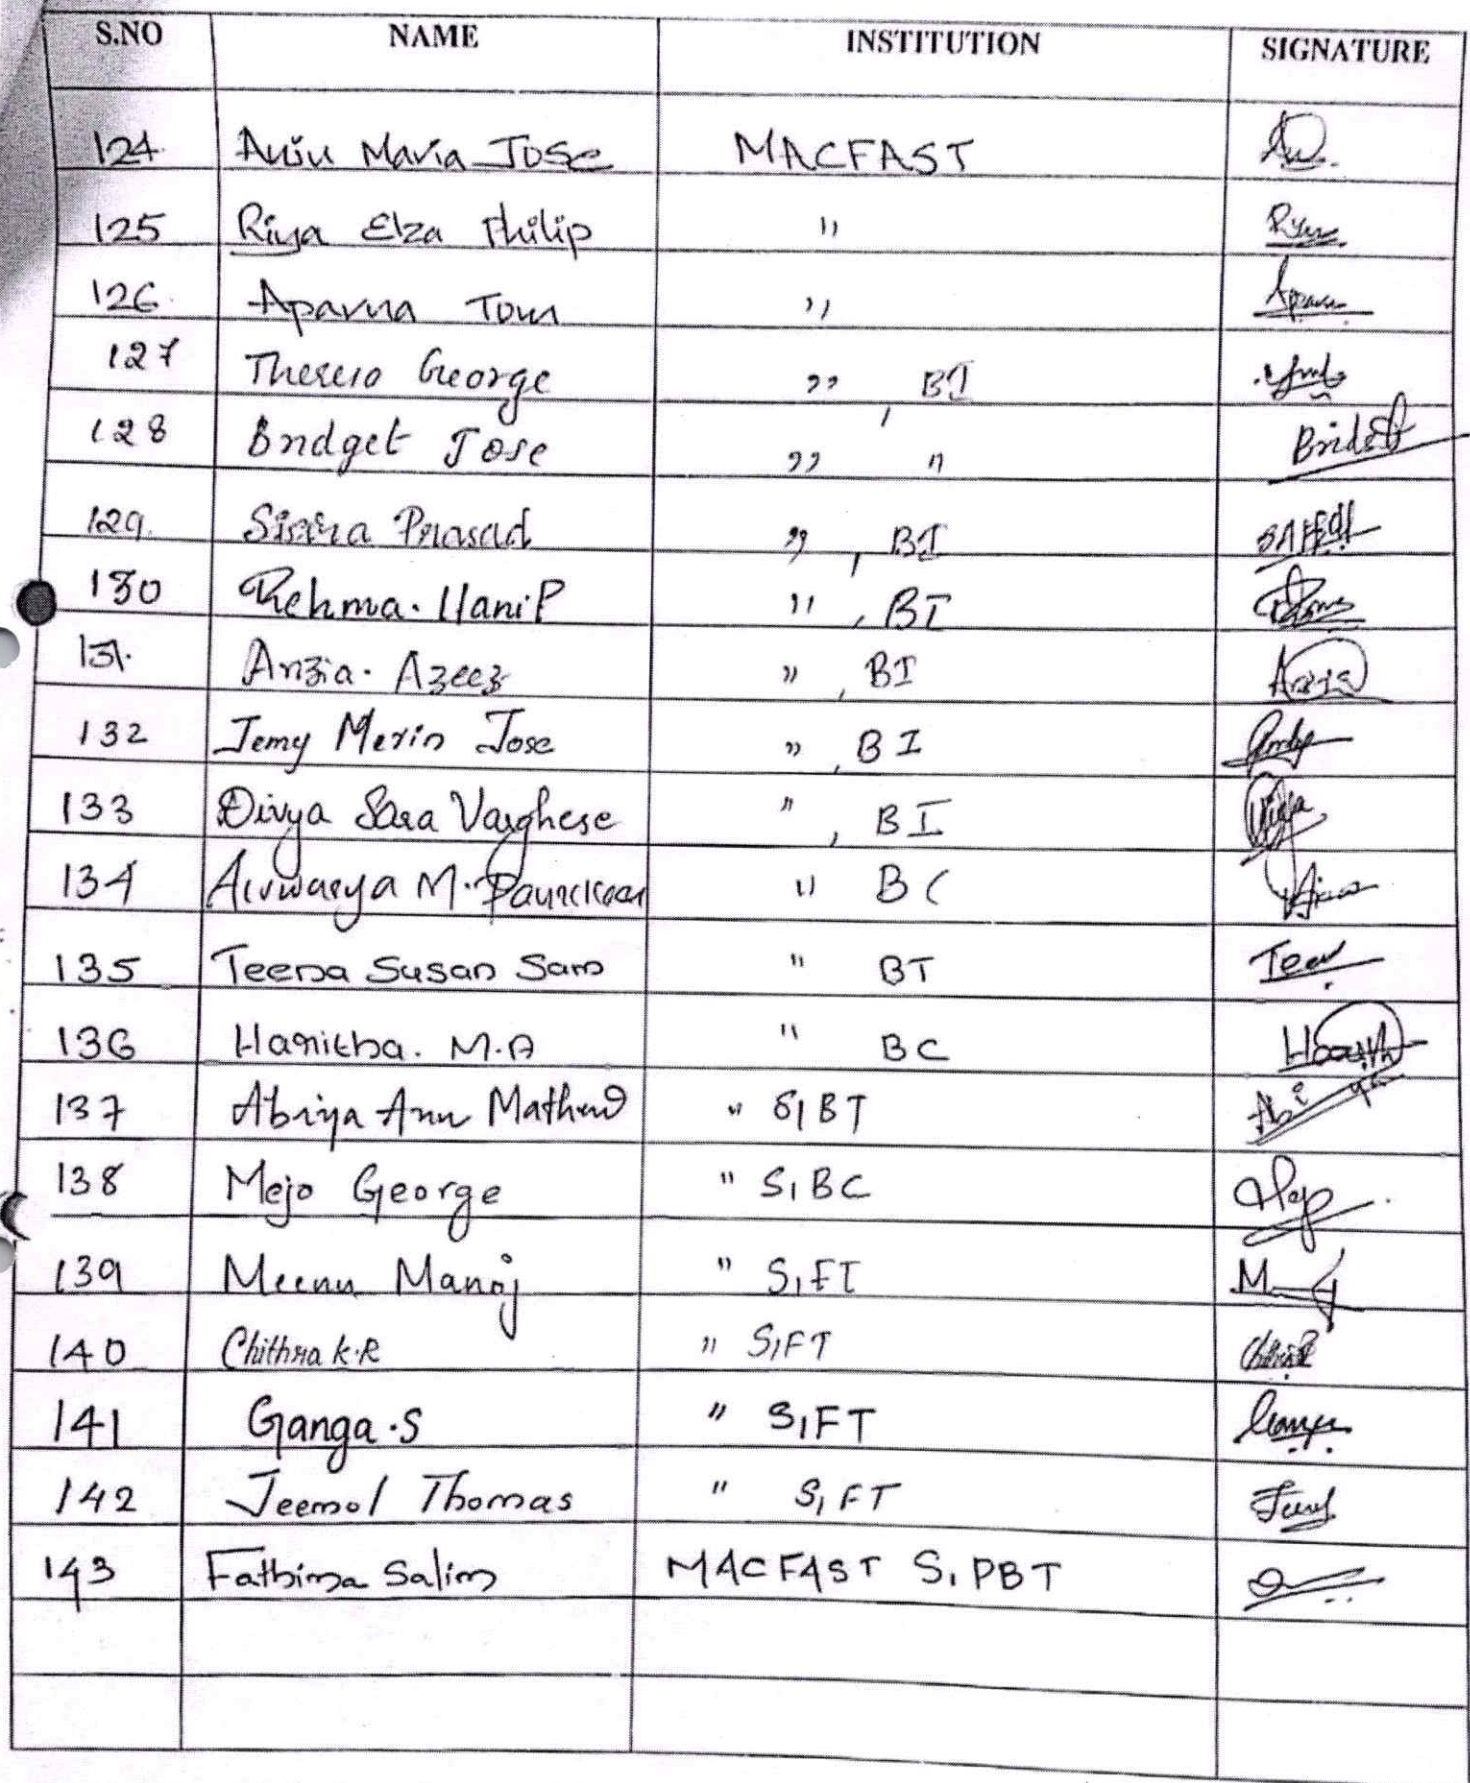 S.NO NAME INSTITUTION SIGNATURE
124 Anju Maria Jose MACFAST
125 Riya Elza Philip "
126. Aparna Tom "
127 George " , BI
128 Bridget Jose " "
129. Prasad " , BI
130 Rehma. Hanif " , BI
131. Anzia. Azeez " , BI
132 Jemy Merin Jose " , BI
133 Divya Sara Varghese " , BI
134 M. " BC
135 Teena Susan Sam " BT
136 Haritha. M.A " BC
137 Abiya Ann Mathew " S1 BT
138 Mejo George " S1 BC
139 Meenu Manoj " S1 FT
140 Chithra K.R " S1 FT
141 Ganga.S " S1 FT
142 Jeemol Thomas " S1 FT
143 Fathima Salim MACFAST S1 PBT